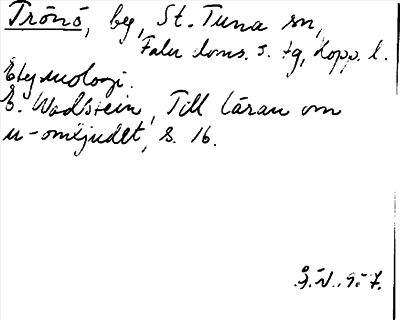 Trönö, by, St. Tuna sn,
Falu doms. s. tg, Kopp. l.
Etymologi.
E. Wadstein, Till läran om
u-omljudet, s. 16.